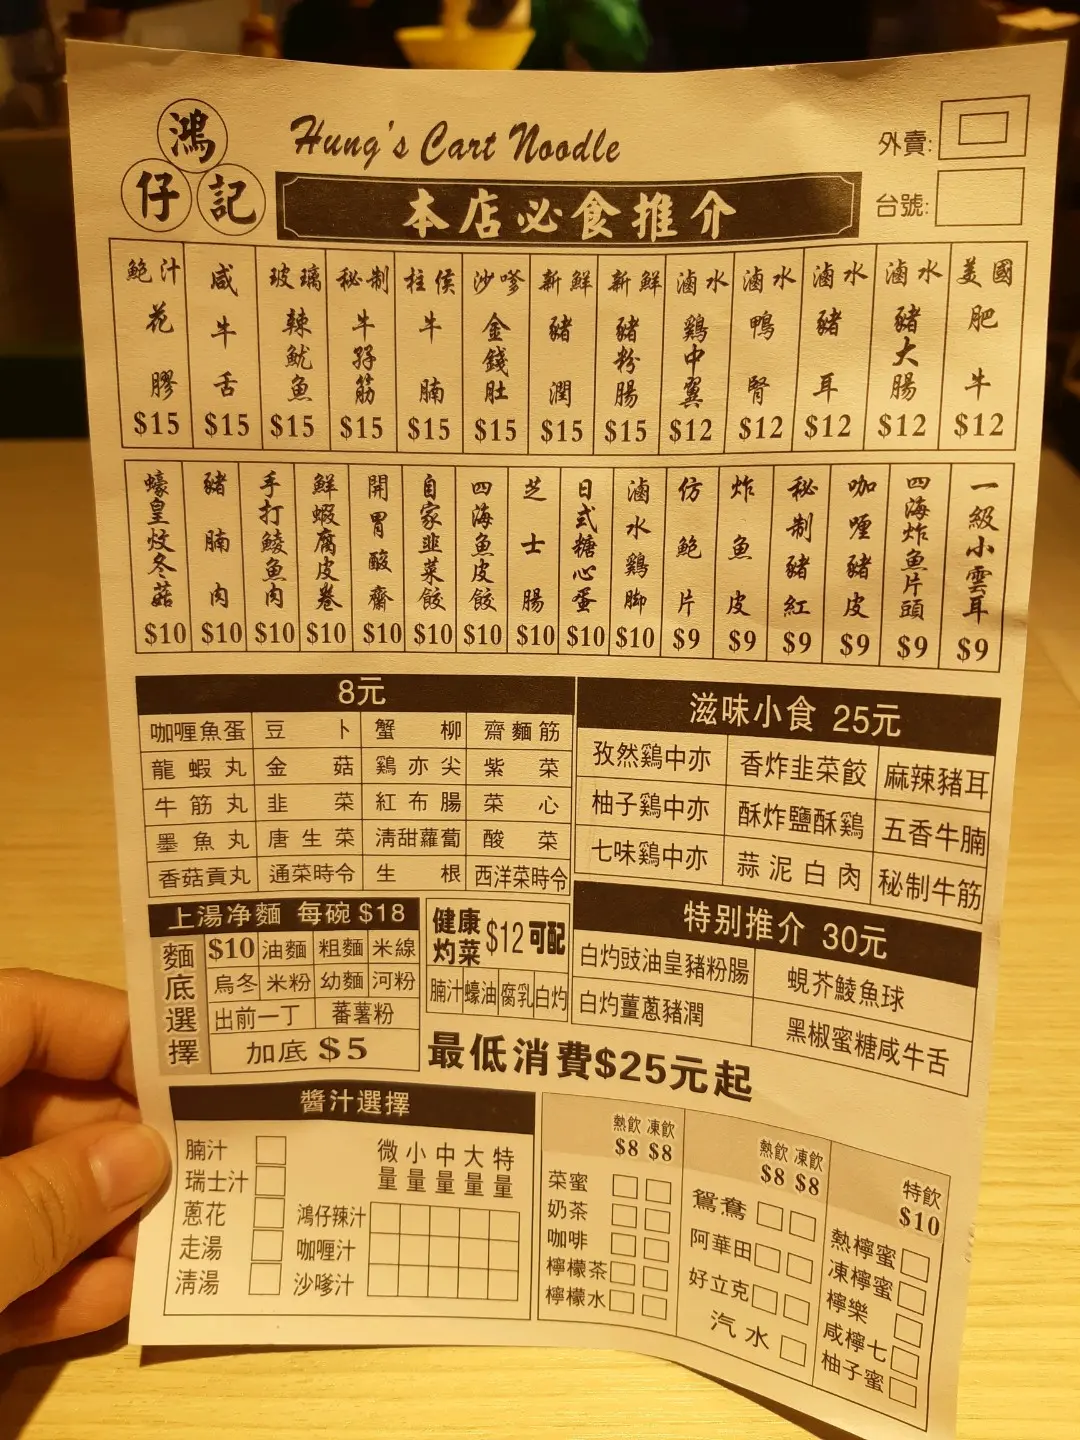 鴻仔記
Hung's Cart Noodle
外賣:
台號:
本店必食推介
鮑汁花膠 $15
咸牛舌 $15
玻璃辣魷魚 $15
秘制牛孖筋 $15
柱侯牛腩 $15
沙嗲金錢肚 $15
新鮮豬潤 $15
新鮮豬粉腸 $15
滷水鷄中翼 $12
滷水鴨腎 $12
滷水豬耳 $12
滷水豬大腸 $12
美國肥牛 $12
蠔皇炆冬菇 $10
豬腩肉 $10
手打鯪魚肉 $10
鮮蝦腐皮卷 $10
開胃酸齋 $10
自家韭菜餃 $10
四海魚皮餃 $10
芝士腸 $10
日式糖心蛋 $10
滷水鷄脚 $10
仿鮑片 $9
炸魚皮 $9
秘制豬紅 $9
咖喱豬皮 $9
四海炸魚片頭 $9
一級小雲耳 $9
8元
咖喱魚蛋 豆卜 蟹柳 齋麵筋
龍蝦丸 金菇 鷄亦尖 紫菜
牛筋丸 韭菜 紅布腸 菜心
墨魚丸 唐生菜 淸甜蘿蔔 酸菜
香菇貢丸 通菜時令 生根 西洋菜時令
滋味小食 25元
孜然鷄中亦 香炸韭菜餃 麻辣豬耳
柚子鷄中亦 酥炸鹽酥鷄 五香牛腩
七味鷄中亦 蒜泥白肉 秘制牛筋
上湯净麵 每碗 $18
麵底選擇
$10 油麵 粗麵 米線
烏冬 米粉 幼麵 河粉
出前一丁 蕃薯粉
加底 $5
健康灼菜 $12 可配
腩汁 蠔油 腐乳 白灼
特别推介 30元
白灼豉油皇豬粉腸 蜆芥鯪魚球
白灼薑蔥豬潤 黑椒蜜糖咸牛舌
最低消費$25元起
醬汁選擇
腩汁
瑞士汁
蔥花
走湯
淸湯
微量 小量 中量 大量 特量
鴻仔辣汁
咖喱汁
沙嗲汁
熱飲 凍飲
$8 $8
菜蜜
奶茶
咖啡
檸檬茶
檸檬水
熱飲 凍飲
$8 $8
鴛鴦
阿華田
好立克
汽水
特飲
$10
熱檸蜜
凍檸蜜
檸樂
咸檸七
柚子蜜